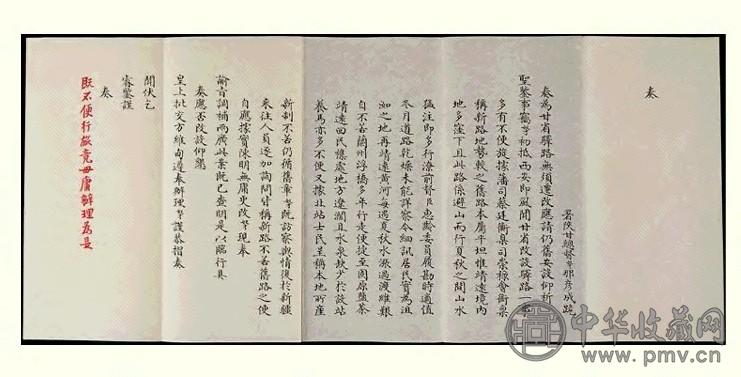 奏
署陝甘總督奴才那彥成跪
奏為甘省驛路無須遷改應請仍舊安設仰祈
聖鑒事竊奴才初抵西安即風聞甘省改設驛路一事
多有不便旋據藩司蔡廷衡臬司崇祿會銜稟
稱新路地勢較之舊路本屬平坦惟靖遠境內
地多窪下且此路係避山而行夏秋之間山水
猛注即多行潦前督臣惠齡委員履勘時適值
冬月道路乾燥未能詳察今細訊居民實為沮
洳之地再靖遠黃河每遇夏秋水漲過渡維艱
自不若蘭州浮橋多年行走便捷至固原鹽茶
靖遠回民懸處地方遼濶且水泉缺少於設站
養馬亦多不便又據北站士民呈稱本地所產
新芻不若仍循舊章奴才既訪察輿情復於新疆
來往人員逐加詢問皆稱新路不若舊路之便
自應據實陳明無庸更改奴才現奉
諭旨調補兩廣此案既已查明是以臨行具
奏應否改設仰懇
皇上批交方維甸遵奉辦理奴才謹恭摺奏
聞伏乞
睿鑒謹
奏
既不便行竟毋庸辦理為是
中华收藏网
www.pmv.cn